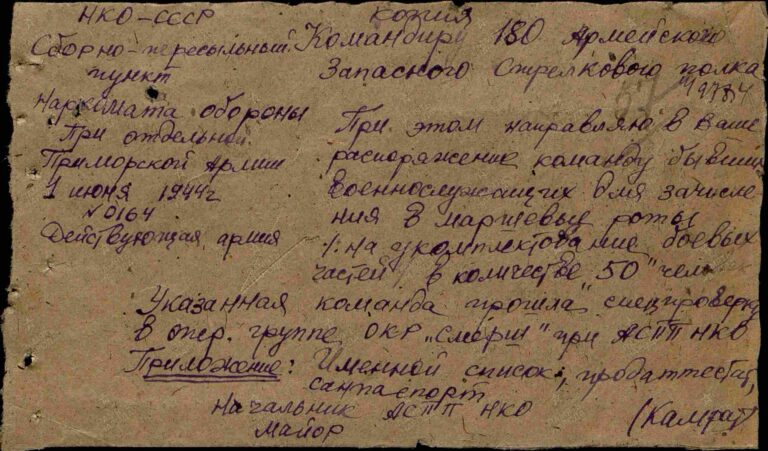 НКО-СССР
Сборно-пересыльный
пункт
Наркомата обороны
При отдельной
Приморской Армии
1 июня 1944г
№0164
Действующая армия
Копия
Командиру 180 Армейского
Запасного Стрелкового полка
При этом направляю в Ваше
распоряжение команду бывших
военнослужащих для зачисле
ния в маршевые роты
/: на укомплектование боевых
частей в количестве 50 " чел
Указанная команда прошла спецпроверку
в опер. группе ОКР "Смерш" при АСПП НКО
Приложение: Именной список, продаттестат,
санпаспорт
Начальник АСПП НКО
Майор